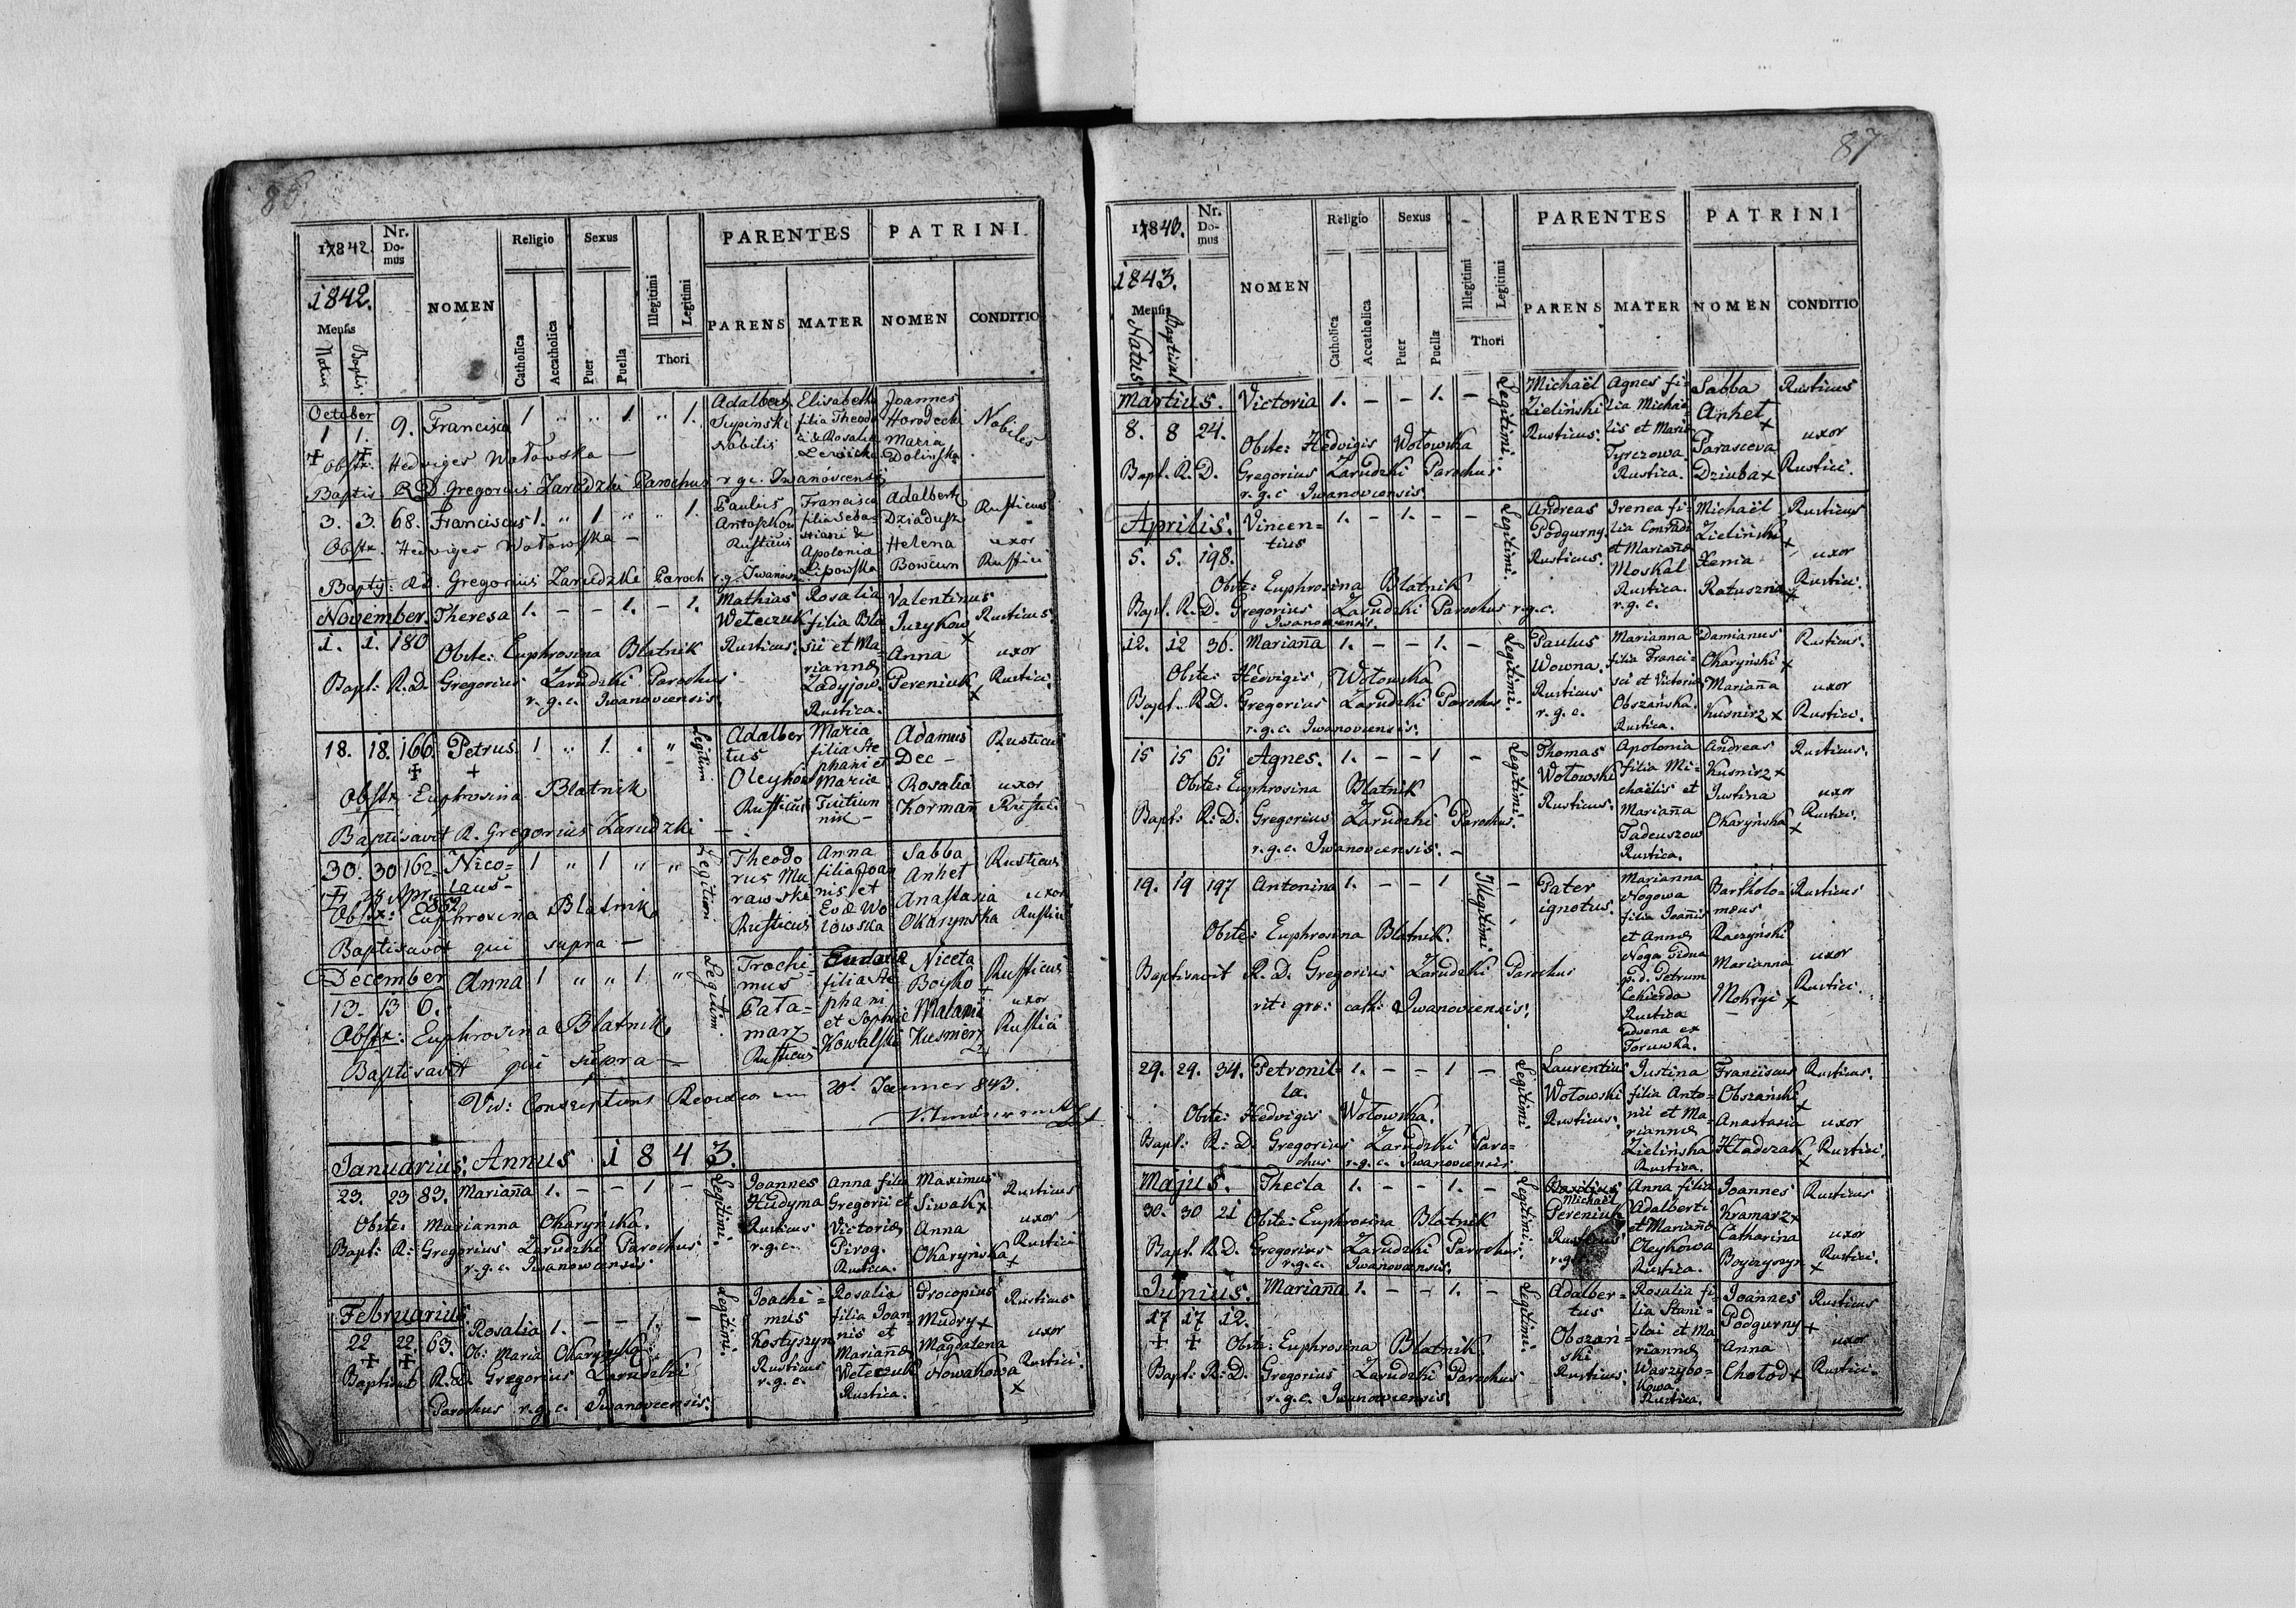 86.
17842. Nr. Domus NOMEN Religio Sexus Illegitimi Legitimi PARENTES PATRINI
1842.
Mensis Natus Baptis. Catholica Accatholica Puer Puella Thori PARENS MATER NOMEN CONDITIO
October
1 1. 9. Francisca 1 " " 1. " 1. Adalbert Supinski Nobilis Elisabetha filia Theodori & Rosalia Lewicka Joannes Horodecki Maria Dolinska Nobiles
Obstx. Hedviges Wołowska —
Baptis. R D. Gregorius Zarudzki Parochus r. g c. Iwanovcensis
3. 3. 68. Franciscus 1. " 1 " " 1. Paulus Antoszkow Rusticus Francisca filia Sebastiani & Apolonia Lipowska Adalbert Dziadusz Helena Bowcun Rusticus uxor Rustici
Obstx. Hedviges Wołowska —
Bapty: Rd. Gregorius Zarudzki Paroch r. g. Iwanow.
November. Theresa 1. – – 1. – 1. Mathias Weteczuk Rusticus. Rosalia filia Blasii et Mariannæ Zadyjow. Rustica. Valentinus Juzykow x Anna Pereniuk x Rusticus. uxor Rustici.
1. 1. 180
Obste: Euphrosina Blatnik
Bapt: R.D. Gregorius Zarudzki Parochus
r. g. c. Iwanoviensis.
18. 18. 166. Petrus 1 " 1. " " Legitimi Adalbertus Oleykow Rusticus Maria filia Stephani et Maria Adamus Dec – Rosalia Kormañ Rusticus uxor Rustici
Obstx. Euphrosina Blatnik
Baptisavit R. Gregorius Zarudzki —
30. 30 162 Nicolaus – 1 " 1 " " Legitimi Theodorus Murawski Rusticus Anna filia Joannis et Evæ Wołowska Sabba Anhet Anastasia Okarynska Rusticus uxor Rustici
Obstx: Euphrosina Blatnik
Baptisavit qui supra —
December Anna 1 " " 1 " Legitimi Trochimus Patamarz Rusticus Eudoxia filia Stephani et Sophie Kowalski Niceta Boyko + Malania Kusmierz Rusticus uxor Rustici
13. 13 6.
Obstx: Euphrosina Blatnik
Baptisavit qui supra —
20t Jaenner 843.
Januarius. Annus 1843.
23. 23 83. Mariaña 1. – – 1 – Legitimi. Joannes Hudyma Rusticus r. g. c. Anna filia Gregorii et Victoriæ Pirog. Rustica. Maximus Siwak x Anna Okaryńska x Rusticus uxor Rustici
Obste: Marianna Okaryńska.
Bapt: R: Gregorius Zarudzki Parochus
r. g. c. Iwanowiensis
Februarius. Rosalia 1. – – 1. – Legitimi. Joachimus Kostyszyn Rusticus r. g. c. Rosalia filia Joannis et Mariañæ Weteczuk Rustica. Procopius Mudry x Magdalena Nowakowa x Rusticus uxor Rustici.
22 22. 63. Ob: Maria Okaryńska
Baptisavit R.D. Gregorius Zarudzki
Parochus r. g. c. Iwanoviensis.
87
17840. Nr. Domus NOMEN Religio Sexus Illegitimi Legitimi PARENTES PATRINI
1843.
Mensis Natus Baptisat. Catholica Accatholica Puer Puella Thori PARENS MATER NOMEN CONDITIO
Martius. Victoria 1. – – 1. – Legitimi. Michaël Zieliński Rusticus. Agnes filia Michaëlis et Maria Tyrczowa. Rustica. Sabba Anhet x Parasceva Dziuba x Rusticus uxor Rustici.
8. 8 24. Obste: Hedvigis Wołowska
Bapt. R. D. Gregorius Zarudzki Parochus
r. g. c Iwanoviensis
Aprilis. Vincentius 1. – 1. – – Legitimi. Andreas Podgurny. Rusticus. Irenea filia Conradi et Mariañæ Moskal Rustica. r. g. c. Michaël Zieliński x Xenia Ratuszna x Rusticus uxor Rustici.
5. 5. 198.
Obste: Euphrosina Blatnik
Bapt. R. D. Gregorius Zarudzki Parochus r. g. c.
Iwanoviensis.
12. 12 36. Mariaña 1. – – 1. – Legitimi. Paulus Wowna. Rusticus r. g. c. Marianna filia Francisci et Victoriæ Obszańska. Rustica. Damianus Okaryński x Mariaña Kusnirz x Rusticus. uxor Rustici.
Obste: Hedvigis Wołowska
Bapt. R.D. Gregorius Zarudzki Parochus
r. g. c. Iwanoviensis.
15 15 61 Agnes. 1. – – 1 – Legitimi. Thomas Wołowski Rusticus. Apolonia filia Michaëlis et Mariaña Tadeuszow Rustica. Andreas Kusnirz x Justina Okaryńska x Rusticus. uxor Rustici.
Obste: Euphrosina Blatnik
Bapt: R: D: Gregorius Zarudzki Parochus.
r. g. c. Iwanoviensis. –
19. 19 197 Antonina 1. – – 1 Illegitimi – Pater ignotus. Marianna Nogowa filia Joañis et Annæ Noga Vidua p. d. Petrum Lekierda Rustica advena ex Toruwka. Bartholomeus Raczyński Marianna Mokryi x Rusticus uxor Rustici.
Obste: Euphrosina Blatnik.
Baptisavit R. D. Gregorius Zarudzki Parochus
rit: gre: cath: Iwanoviensis.
29. 29. 34. Petronilla. 1. – – 1 – Legitimi Laurentius Wołowski Rusticus. Justina filia Antonii et Mariannæ Zielińska Rustica. Franciscus Obszański x Anastasia Hładczak x Rusticus. uxor Rustici.
Obste: Hedvigis Wołowska.
Bapt: R: D: Gregorius Zarudzki Parochus r. g. c. Iwanoviensis
Majus. Thecla 1. – – 1. – Legitimi. Basilius Michaël Pereniuk Rusticus r. g. Anna filia Adalberti et Mariañæ Oleykowa Rustica. Joannes Kramarz x Catharina Boyczyszyn x Rusticus uxor Rustici.
30. 30 21 Obste: Euphrosina Blatnik
Bapt. R D. Gregorius Zarudzki Parochus.
r. g. c. Iwanoviensis.
Junius. Mariaña 1. – – 1. – Legitimi. Adalbertus Obszański Rusticus. Rosalia filia Stanislai et Mariannæ Warzybokowa. Rustica. Joannes Podgurny x Anna Chołod x Rusticus uxor Rustici.
17 17 12.
Obste: Euphrosina Blatnik.
Bapt: R: D. Gregorius Zarudzki Parochus
r. g. c. Iwanoviensis